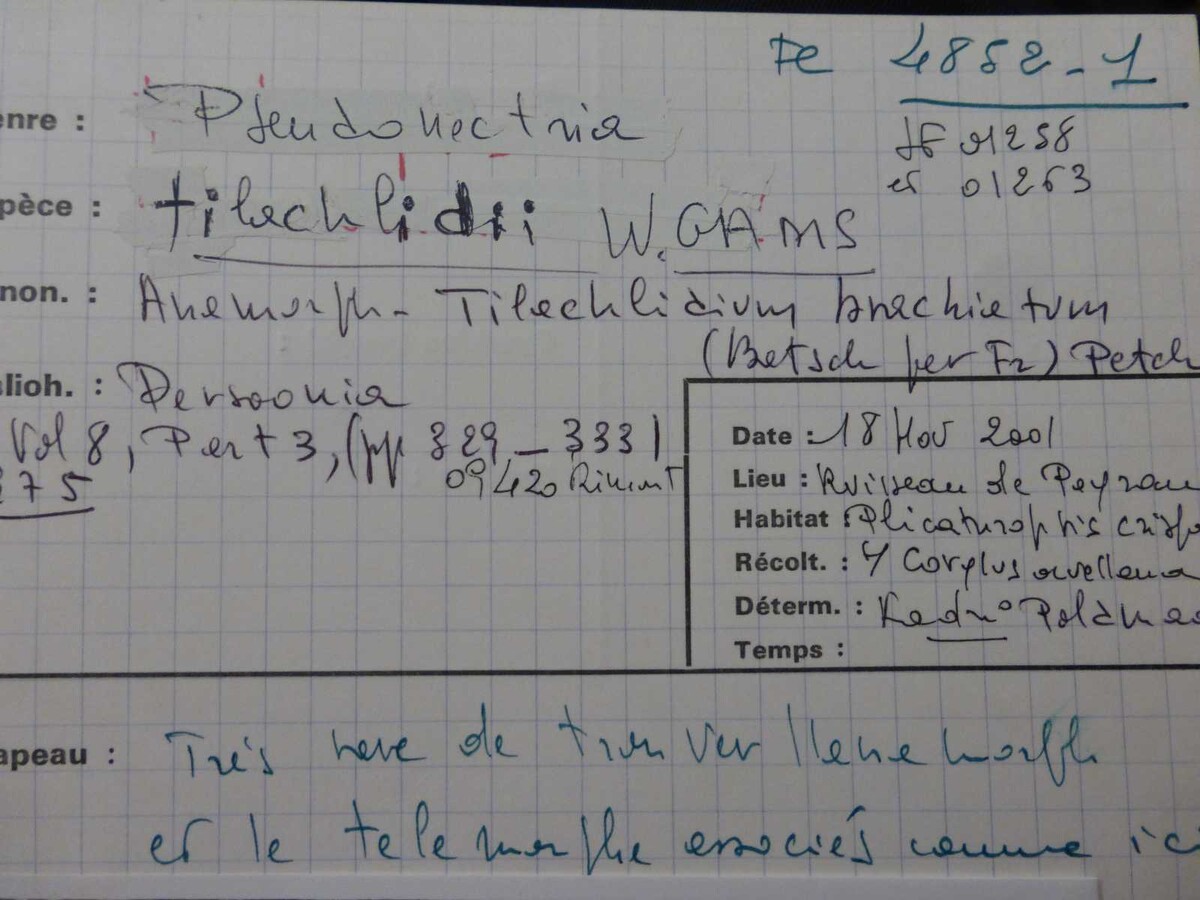 FE 4852-1
enre : Pseudonectria
JF 01258
et 01263
pèce : tilachlidii W. GAMS
non. : Anamorph - Tilachlidium brachiatum
(Batsch per Fr) Petch
lioh. : Persoonia
Vol 8, Part 3, (pp 329 - 333)
09420 Rimont
75
Date : 18 Nov 2001
Lieu : Ruisseau de Peyrau
Habitat : Plicaturophis crisp
Récolt. : / Corylus avellana
Déterm. :
Temps :
apeau : Très rare de trouver l'anamorph
et le telemorphe associés comme ici